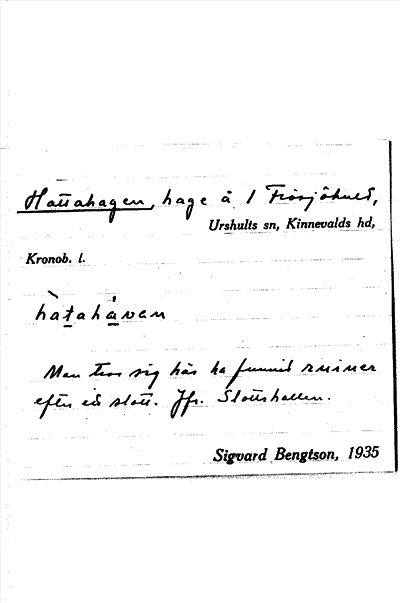 Hattahagen, hage å 1 Fiosjöhult,
Urshults sn, Kinnevalds hd,
Kronob. l.
hàtahàven
Man tror sig här ha funnit ruiner
efter ett slott. Jfr. Slottshallen.
Sigvard Bengtson, 1935